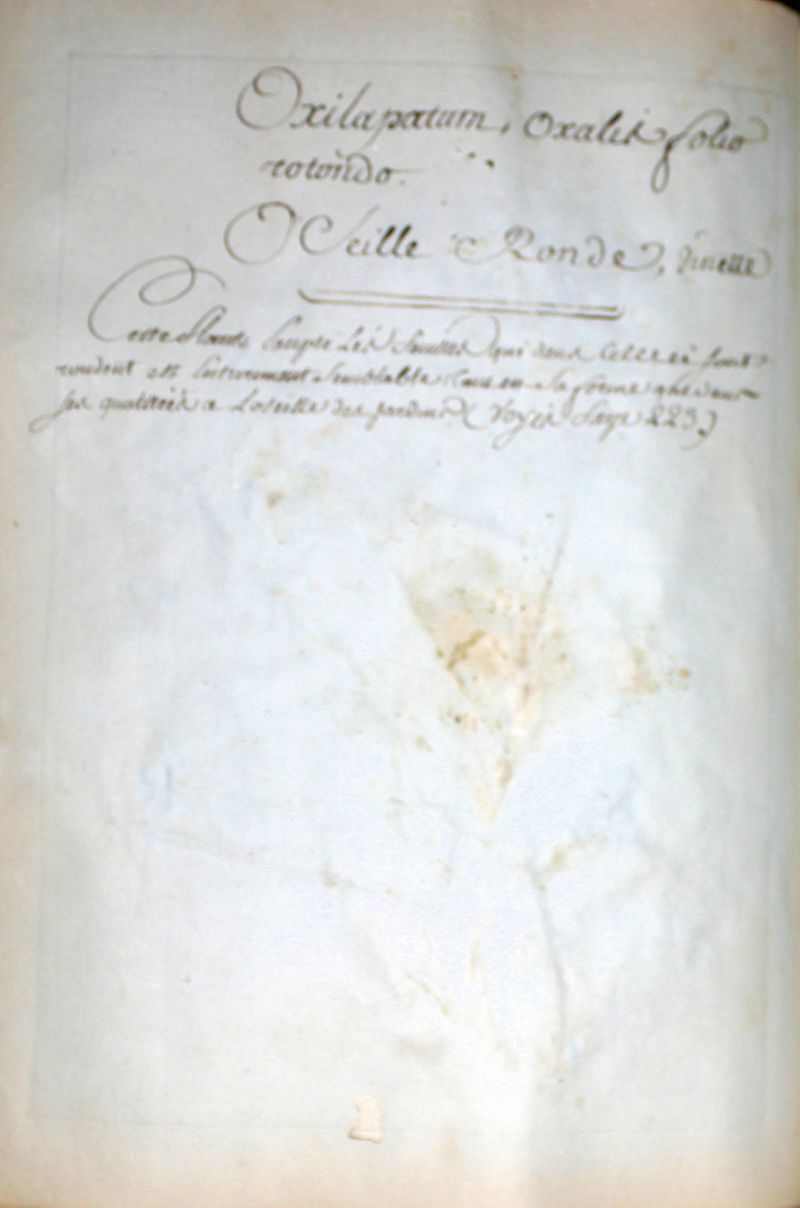 Oxilapatum, oxalis folio
rotondo.
OSeille Ronde, vinette
Cette Plante, Excepté Les feuilles qui dans celle cy sont
rondent est Entierement semblable tant en sa forme que dans
ses qualitéés a Loseille des jardins. (Voyés Page 223)